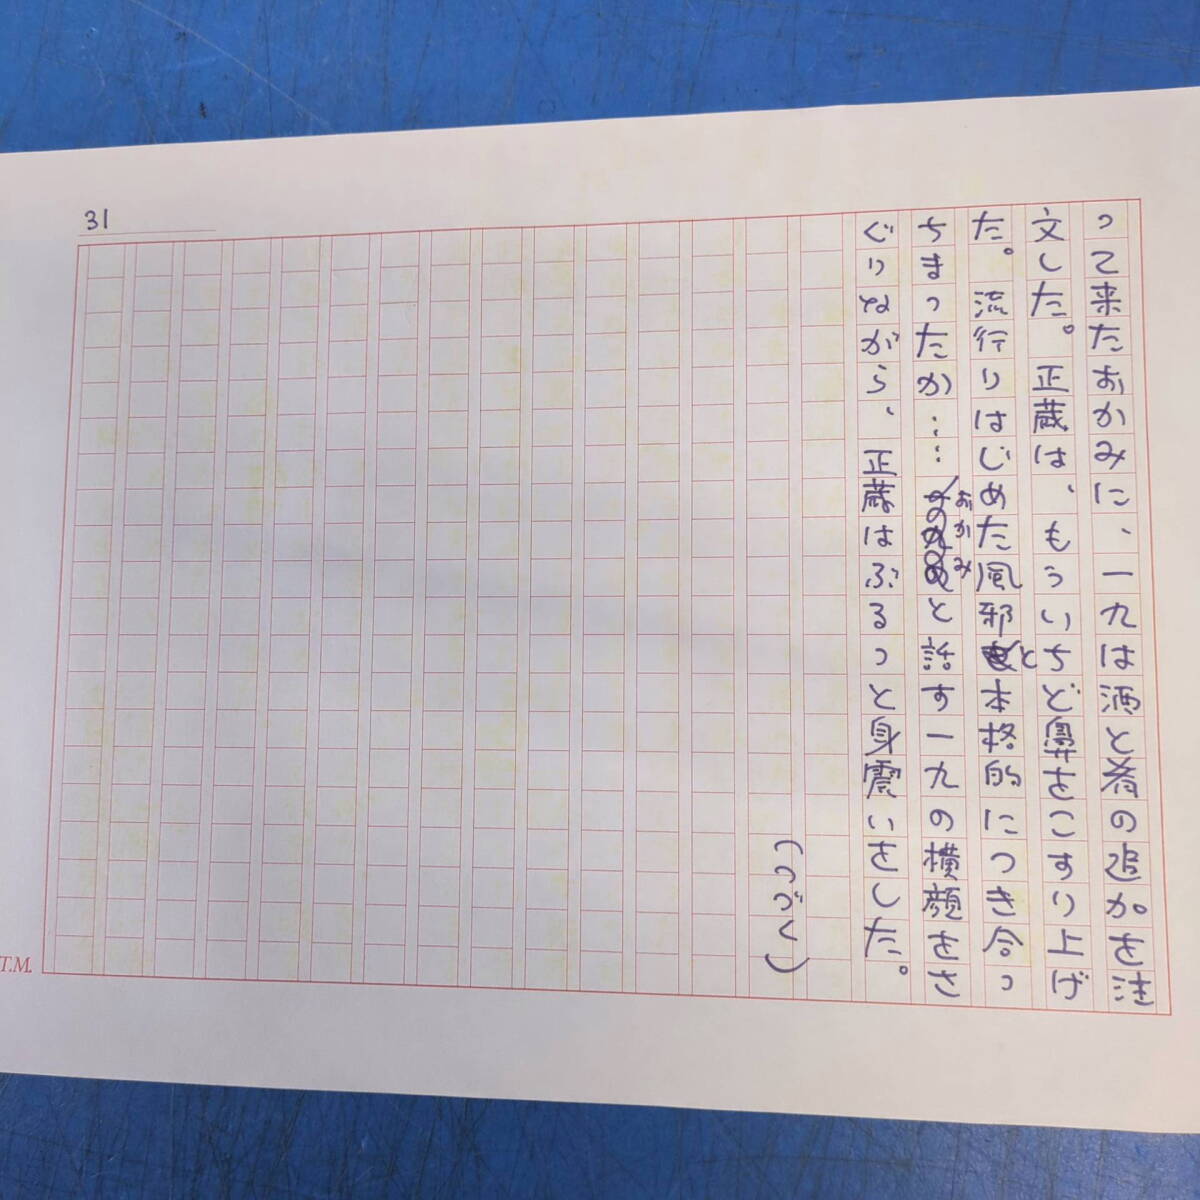 って来たおかみに、一九は酒と肴の追加を注
文した。正蔵は、もういちど鼻をこすり上げ
た。流行りはじめた風邪と本格的につき合っ
ちまったか……おかみと話す一九の横顔をさ
ぐりながら、正蔵はぶるっと身震いをした。
(つづく)
31
T.M.